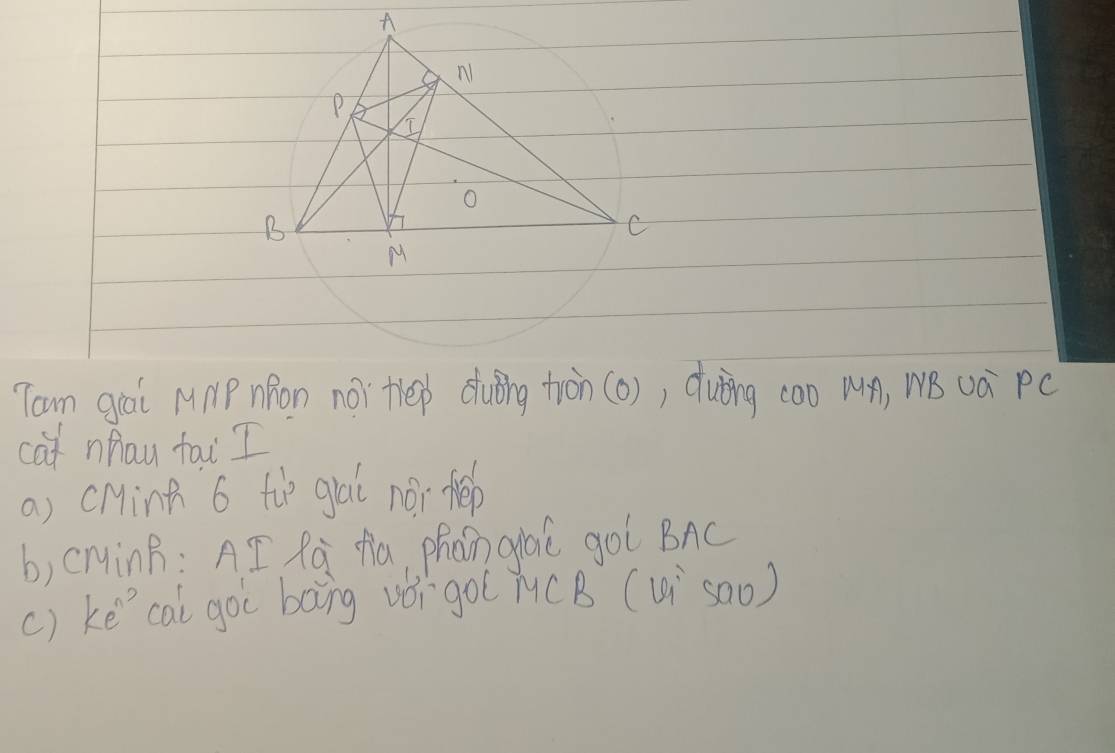 A
N
P
I
O
B
C
M
Tam giái MNP nhọn nội tiếp đường tròn (O), đường cao MA, NB và PC
cắt nhau tại I
a) CMinh 6 tứ giác nội tiếp
b, CMinh: AI là tia phân giác gói BAC
c) kể cái gói bằng với gói MCB (vì sao)